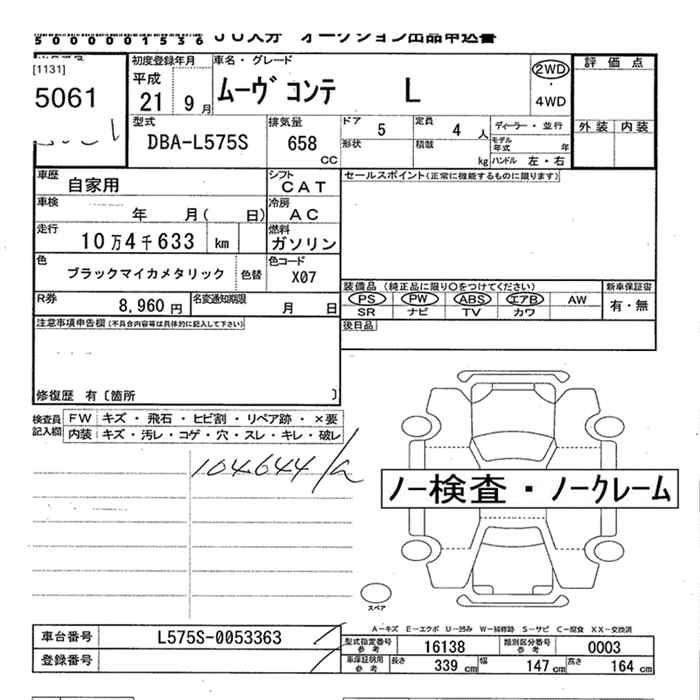 5000001536 JU大分 オークション出品申込書
[1131]
5061
初度登録年月
平成
21 9月
車名・グレード
ムーヴ コンテ L
2WD
・
4WD
評価点
外装 内装
型式
DBA-L575S
排気量
658
cc
ドア 5
定員 4 人
ディーラー・並行
モデル年式 年
形状
積載 kg
ハンドル 左・右
車歴 自家用
シフト CAT
セールスポイント(正常に機能するものに限ります)
車検 年 月( 日)
冷房 AC
走行 10万4千633 km
燃料 ガソリン
色 ブラックマイカメタリック 色替
色コード X07
装備品 (純正品に限り○をつけてください)
新車保証書
PS PW ABS エアB AW
有・無
SR ナビ TV カワ
R券 8,960円
名変通知期限 月 日
後日品
注意事項申告欄(不具合内容等は具体的に記入して下さい)
修復歴 有〔箇所 〕
検査員記入欄
FW キズ・飛石・ヒビ割・リペア跡・×要
内装 キズ・汚レ・コゲ・穴・スレ・キレ・破レ
104644
ノー検査・ノークレーム
スペア
A-キズ E-エクボ U-凹み W-補修跡 S-サビ C-腐食 XX-交換済
車台番号 L575S-0053363
型式指定番号 参考 16138
類別区分番号 参考 0003
登録番号
車庫証明用 参考 長さ 339 cm 幅 147 cm 高さ 164 cm